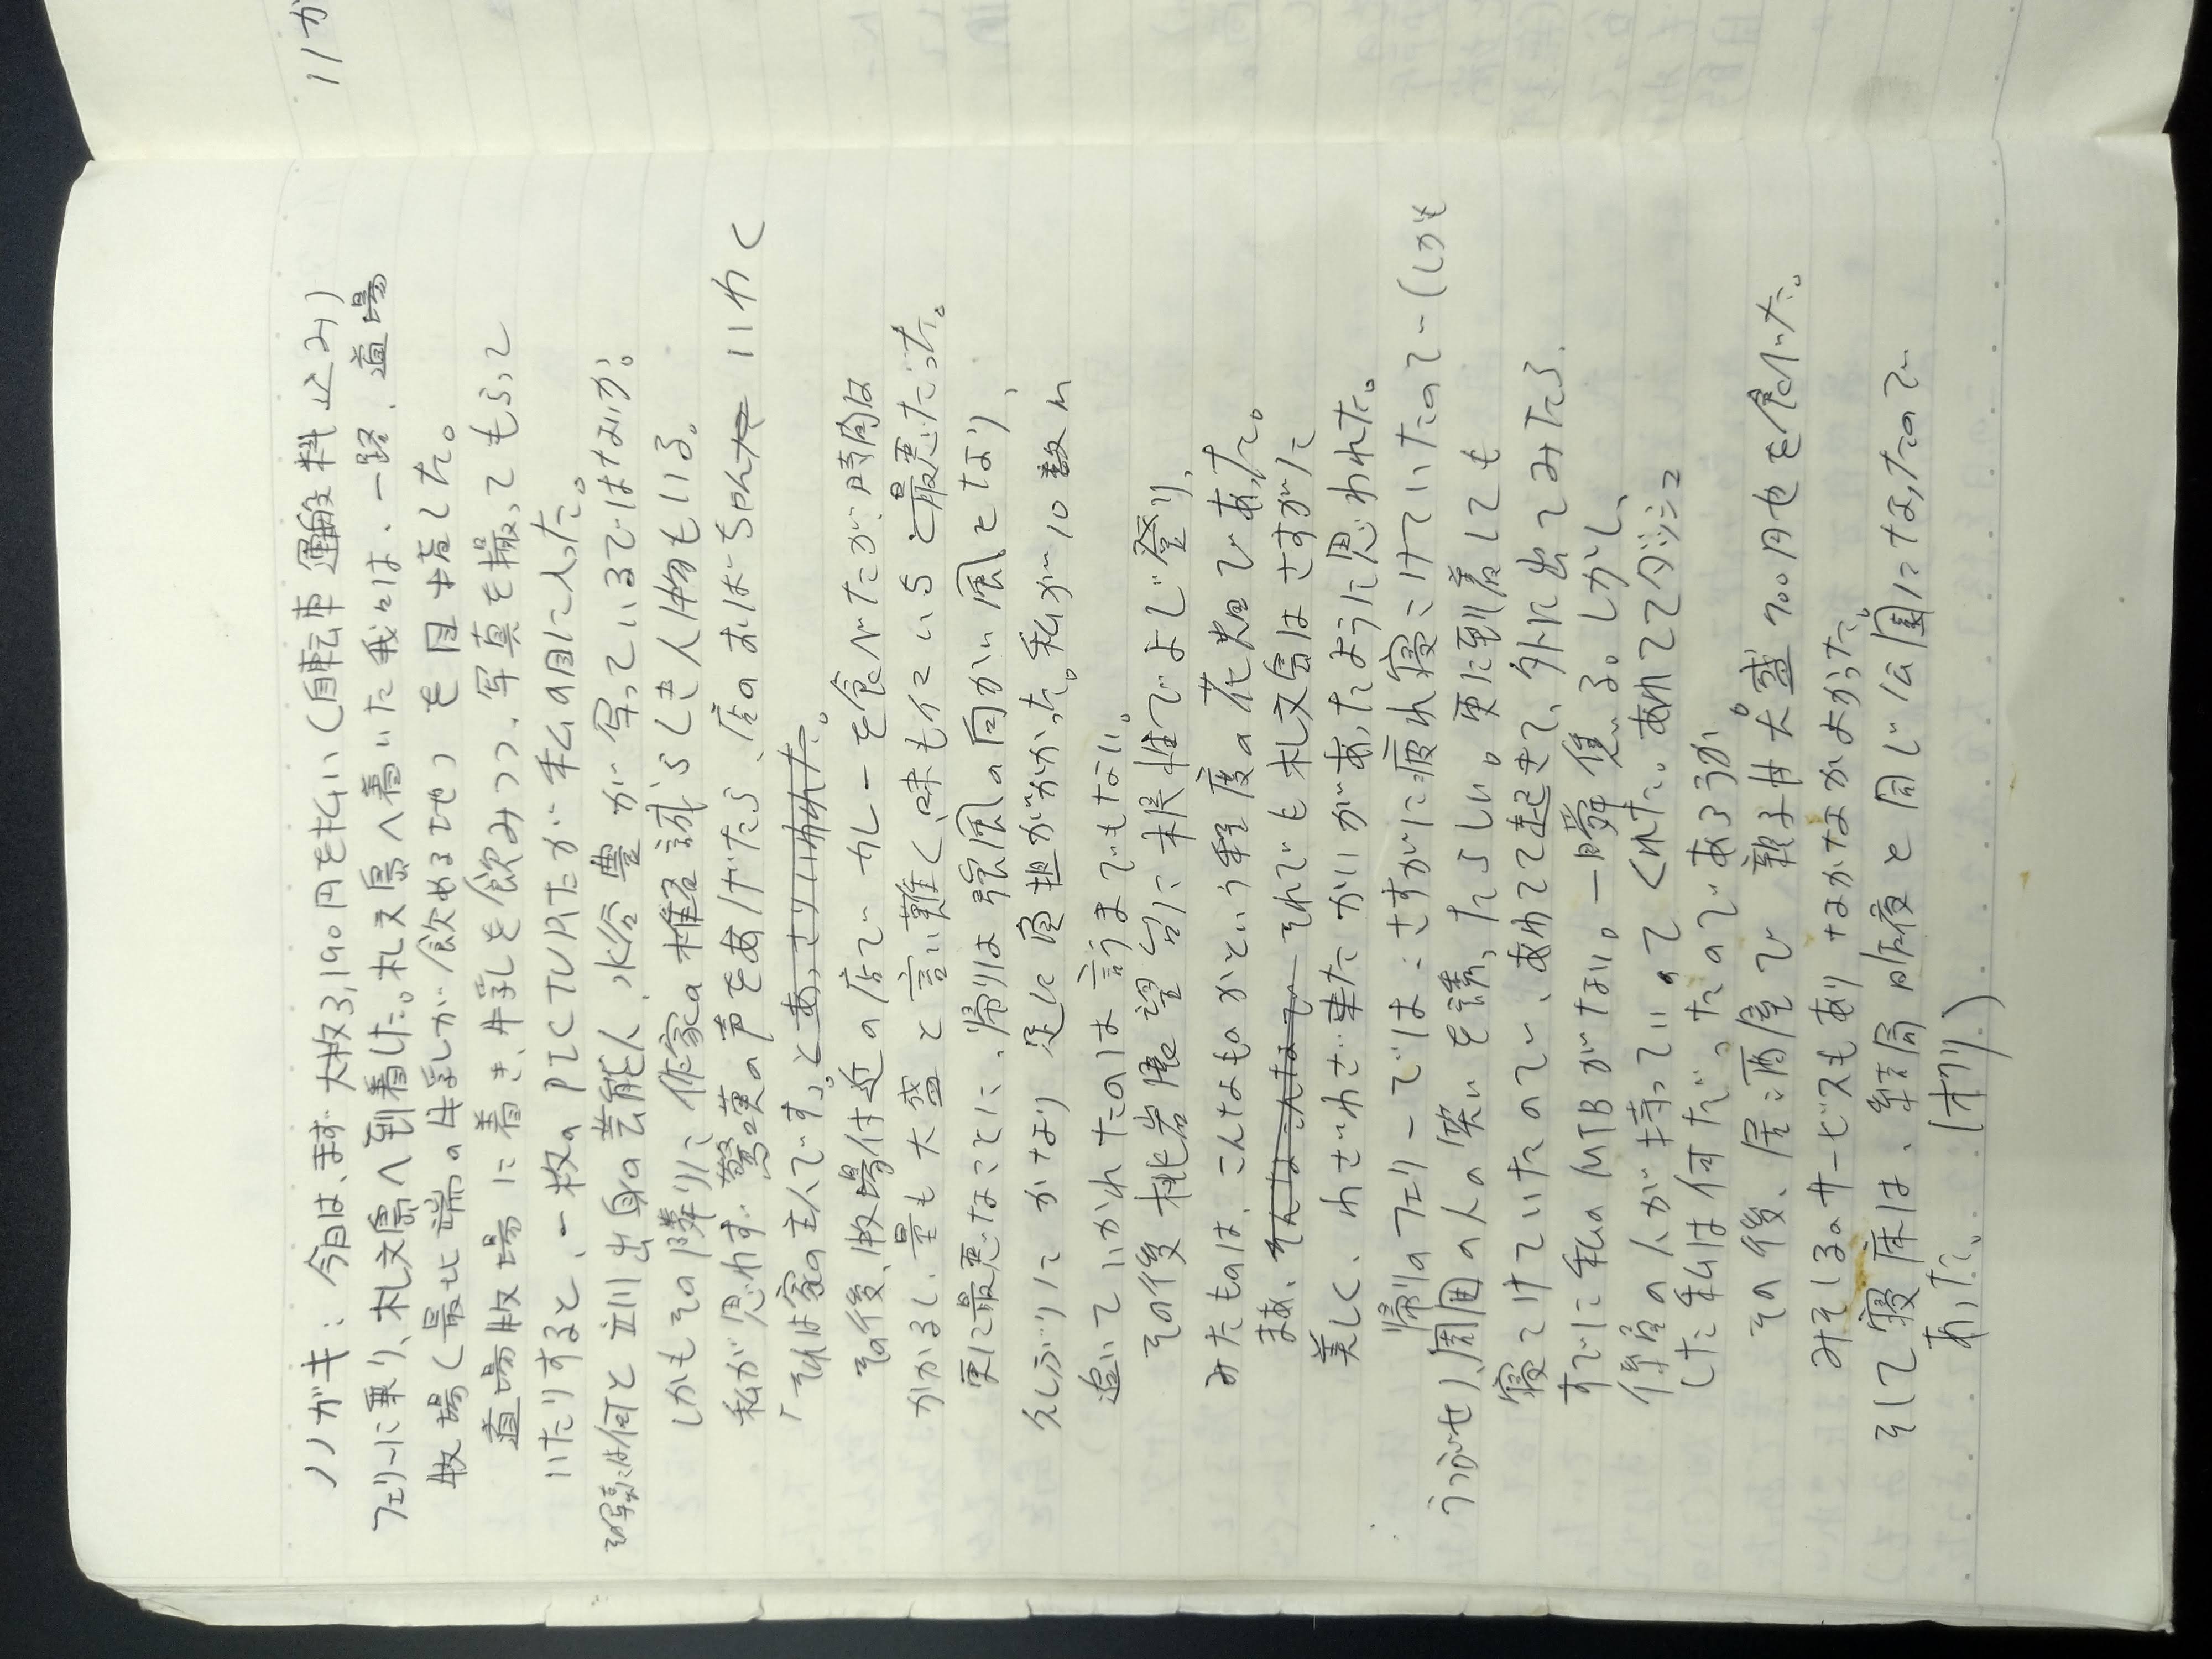 ノノガキ：今日は、まず大枚3,190円を払い（自転車運搬料込み）
フェリーに乗り、札文島へ到着した。札文島へ着いた我々は、一路、道場
牧場く最北端の牛乳が飲める地つを目指した。
道場牧場に着き、牛乳を飲みつつ、写真を撮ってもらって
いたりすると、一枚のPICTURたが私の目に入った。
その写真には何と立川出身の芸能人、水谷豊が写っているではないか。
しかもその隣りに作家の椎名誠らしき人物もいる。
私が思わず驚嘆の声をあげたら、店のおばちゃんいわく
「それは家の主人です。」とあっさりいわれた。
その後、牧場付近の店でカレーを食べたが、時間は
かかるし、量も大盛と言い難く、味もイマいちと最悪だった。
更に最悪なことに、帰りは強風の向かい風となり、
久しぶりにかなり足に負担がかかった。私が10数km
追いていかれたのは言うまでもない。
その後桃岩展望台に根性でよじ登り、
みたものは、こんなものかという程度の花畑であった。
まあ、そんなこんなで それでも札文島はさすがに
美しく、わざわざ来たかいがあったように思われた。
帰りのフェリーでは、さすがに疲れ寝こけていたのでー（しかも
うつぶせ）、周囲の人の笑いを誘ったらしい。更に到着しても
寝こけていたので、あわてて起きて、外に出てみたら、
すでに私のMTBがない。一瞬焦る。しかし、
係員の人が持っていってくれた。あわててダッシュ
した私は何だったのであろうか。
その後、居酒屋で親子丼大盛700円也を食べた。
みそしるのサービスもありなかなかよかった。
そして寝床は、結局昨夜と同じ公園になったので
あった。（オワリ）
11か